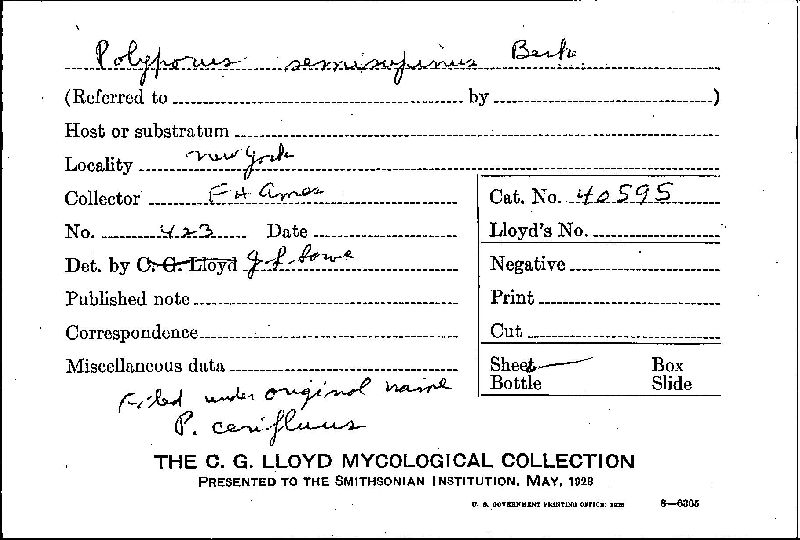 Polyporus semisupinus Berk.
(Referred to by )
Host or substratum
Locality New York
Collector F H Ames
Cat. No. 40595
No. 423 Date
Lloyd's No.
Det. by C. G. Lloyd J L Lowe
Negative
Published note
Print
Correspondence
Cut
Miscellaneous data
Sheet Box
Bottle Slide
Filed under original name
P. cerifluus
THE C. G. LLOYD MYCOLOGICAL COLLECTION
PRESENTED TO THE SMITHSONIAN INSTITUTION, MAY, 1928
U. S. GOVERNMENT PRINTING OFFICE: 1928 8—6305